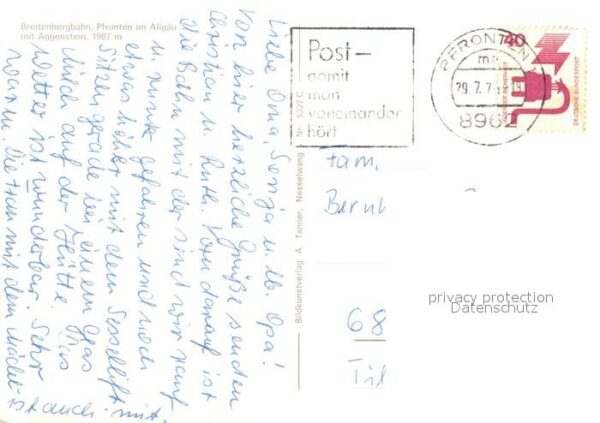 Breitenbergbahn, Pfronten im Allgäu
mit Aggenstein, 1987 m
Liebe Oma, Sonja u. lb. Opa!
Von hier herzliche Grüße senden
Christian u. Ruth. Vorn darauf ist
die Bahn mit der sind wir rauf
u. runter gefahren und noch
etwas höher mit dem Sessellift
Sitzen gerade bei einem Glas
Milch auf der Hütte. Das
Wetter ist wunderbar. Sehr
warm. Die
mit dem
ist auch mit.
Bildkunstverlag A. Tanner, Nesselwang
Nr. 5/27 C
Post-
damit
man
voneinander
hört
PFRONTEN 1
29.7.7
8962
40
JEDERZEIT SICHERHEIT
DEUTSCHE BUNDESPOST
Fam.
Bernh
68
privacy protection
Datenschutz